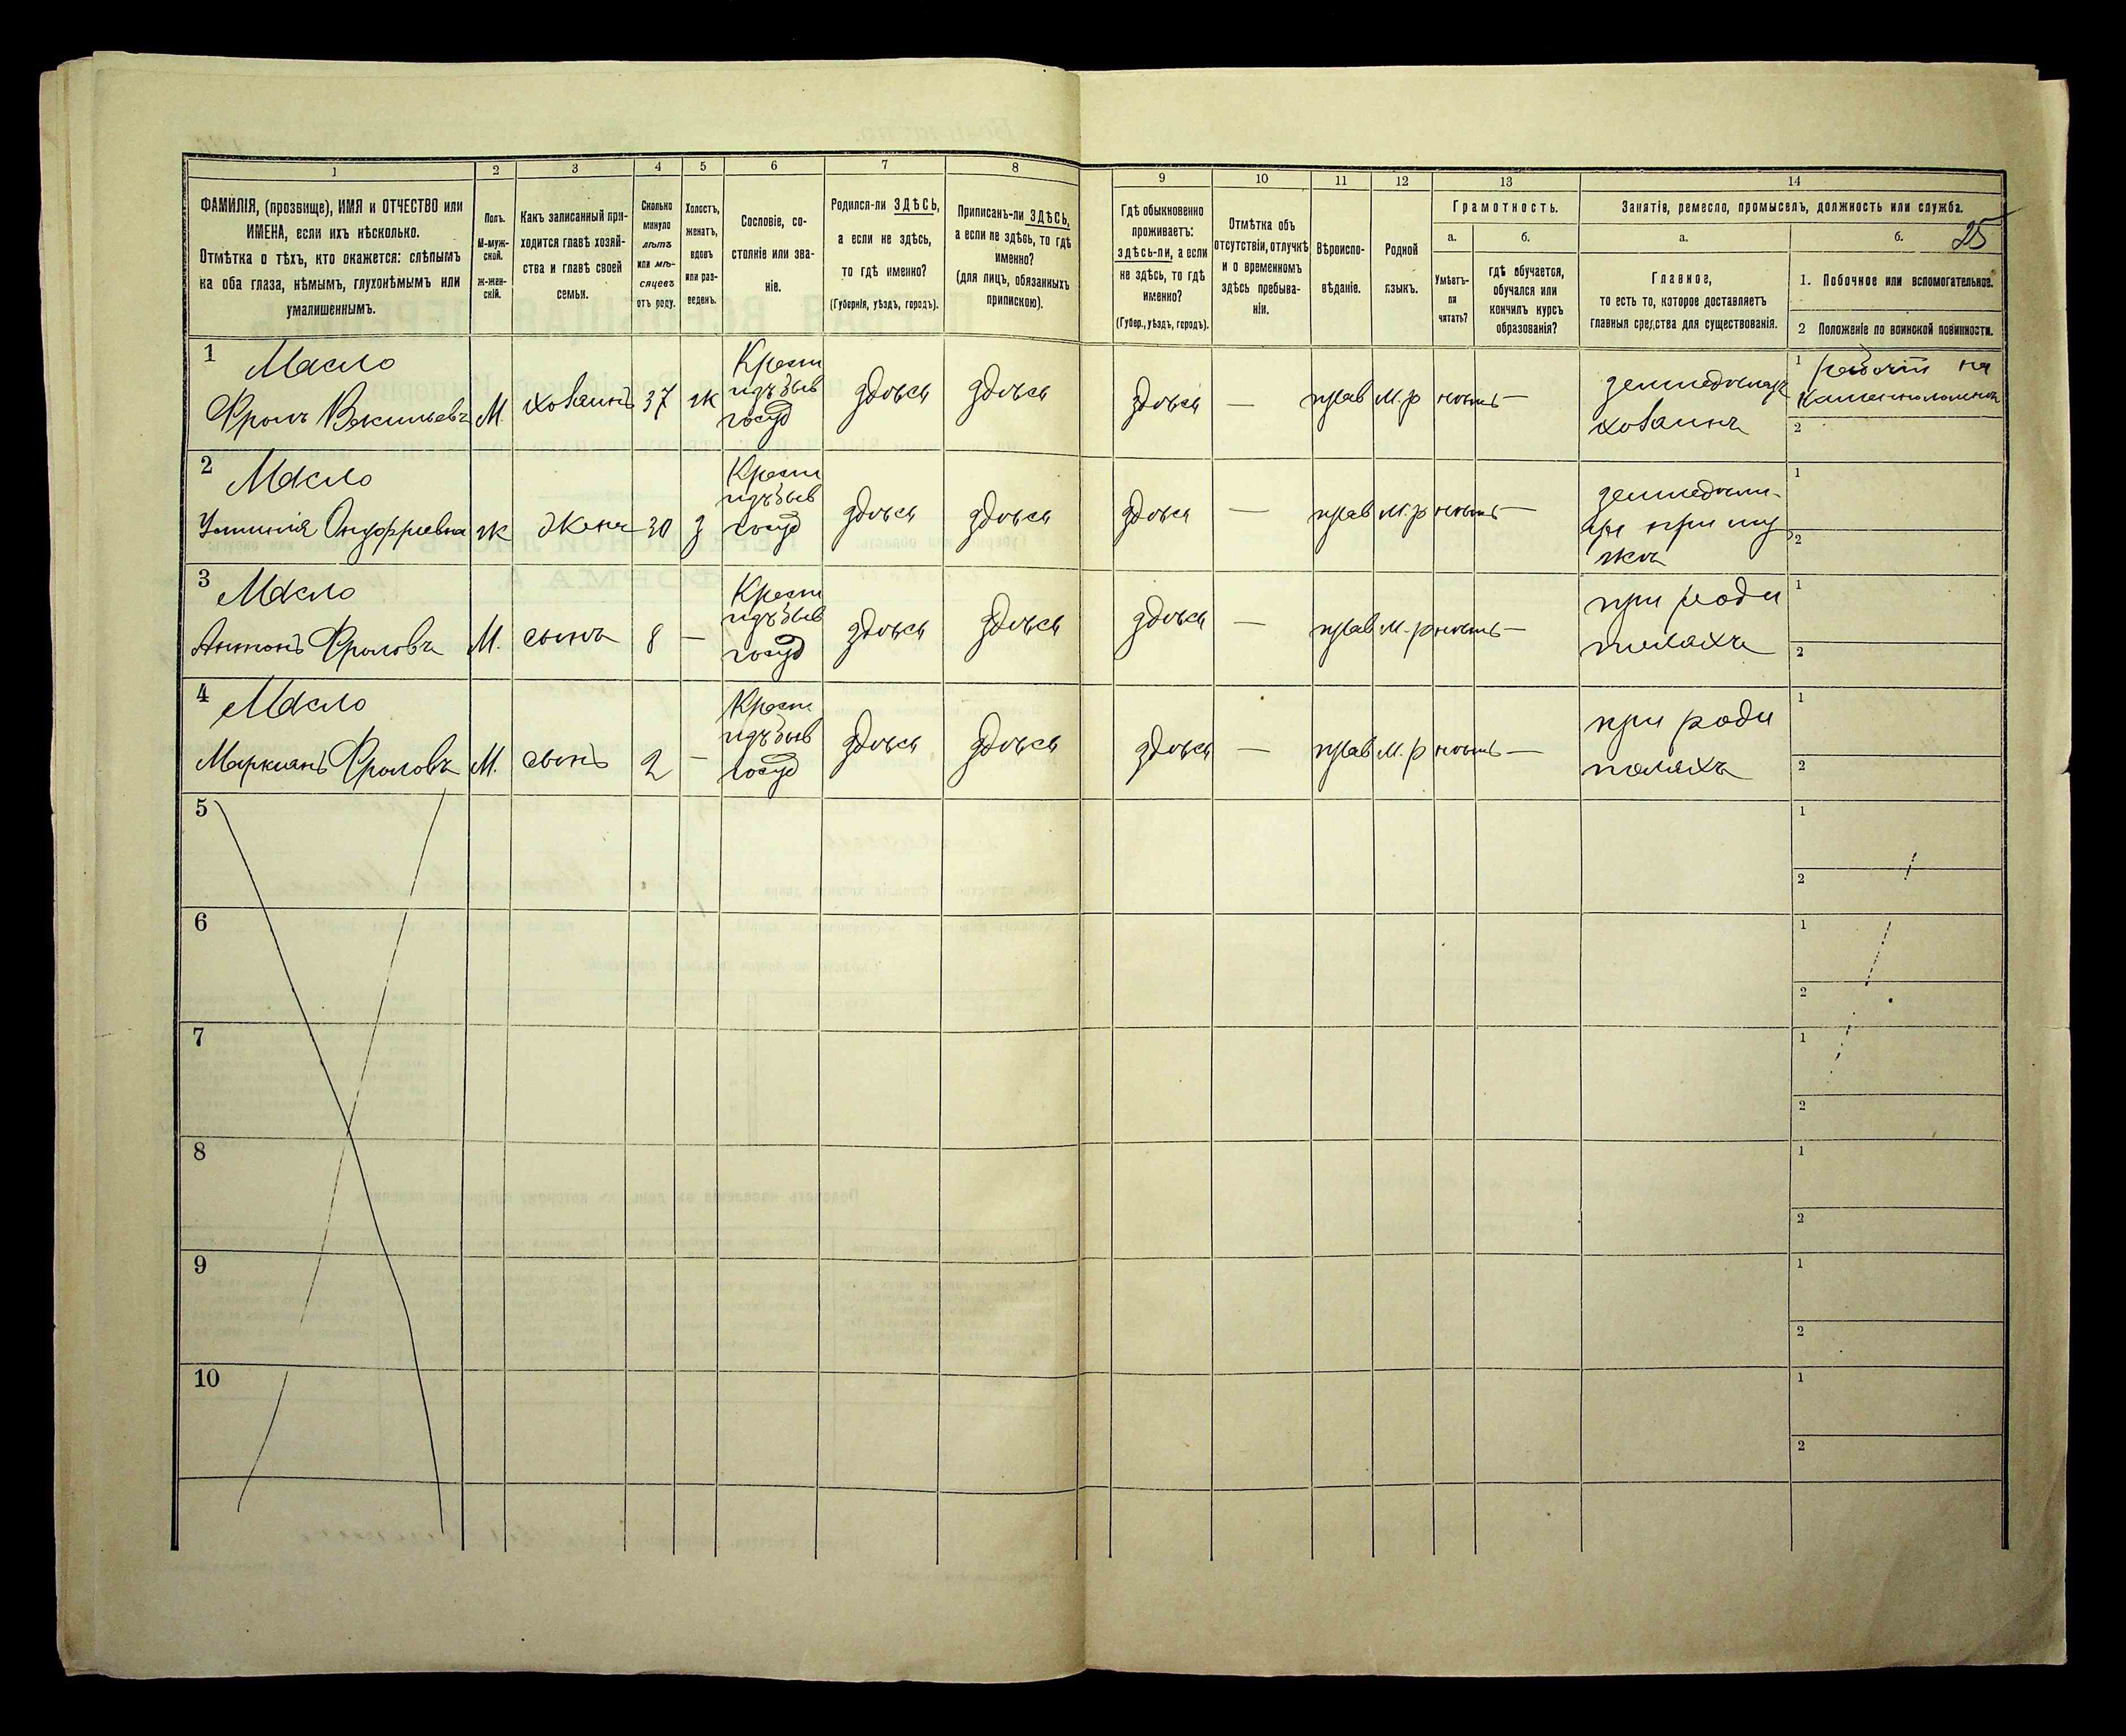 1 2 3 4 5 6 7 8 9 10 11 12 13 14
ФАМИЛІЯ, (прозвище), ИМЯ и ОТЧЕСТВО или
ИМЕНА, если ихъ нѣсколько.
Отмѣтка о тѣхъ, кто окажется: слѣпымъ
на оба глаза, нѣмымъ, глухонѣмымъ или
умалишеннымъ.
Полъ.
М-муж-
ской.
Ж-жен-
скій.
Какъ записанный при-
ходится главѣ хозяй-
ства и главѣ своей
семьи.
Сколько
минуло
лѣтъ
или мѣ-
сяцевъ
отъ роду.
Холостъ,
женатъ,
вдовъ
или раз-
веденъ.
Сословіе, со-
стояніе или зва-
ніе.
Родился-ли ЗДѢСЬ,
а если не здѣсь,
то гдѣ именно?
(Губернія, уѣздъ, городъ).
Приписанъ-ли ЗДѢСЬ,
а если не здѣсь, то гдѣ
именно?
(для лицъ, обязанныхъ
припискою).
Гдѣ обыкновенно
проживаетъ:
здѣсь-ли, а если
не здѣсь, то гдѣ
именно?
(Губер., уѣздъ, городъ).
Отмѣтка объ
отсутствіи, отлучкѣ
и о временномъ
здѣсь пребыва-
ніи.
Вѣроиспо-
вѣданіе.
Родной
языкъ.
Грамотность.
а.
Умѣетъ-
ли
читать?
б.
гдѣ обучается,
обучался или
кончилъ курсъ
образованія?
Занятія, ремесло, промыселъ, должность или служба.
25
а.
Главное,
то есть то, которое доставляетъ
главныя средства для существованія.
б.
1. Побочное или вспомогательное.
2 Положеніе по воинской повинности.
1 Масло
Фролъ Васильевъ М. хозаинъ 37 ж
Крест
изъ быв
госуд
здѣсь здѣсь здѣсь — прав М.р нѣтъ —
земледѣлецъ
хозаинъ
1
на
2
2 Масло
Онуфріевна ж Жена 30 з
Крест
изъ быв
госуд
здѣсь здѣсь здѣсь — прав М.р нѣтъ —
при му
жѣ
1
2
3 Масло
Антонъ Фроловъ М. сынъ 8 —
Крест
изъ быв
госуд
здѣсь здѣсь здѣсь — прав М.р нѣтъ —
при роди
теляхъ
1
2
4 Масло
Маркіанъ Фроловъ М. сынъ 2 —
Крест
изъ быв
госуд
здѣсь здѣсь здѣсь — прав М.р нѣтъ —
при роди
теляхъ
1
2
5
1
2
6
1
2
7
1
2
8
1
2
9
1
2
10
1
2